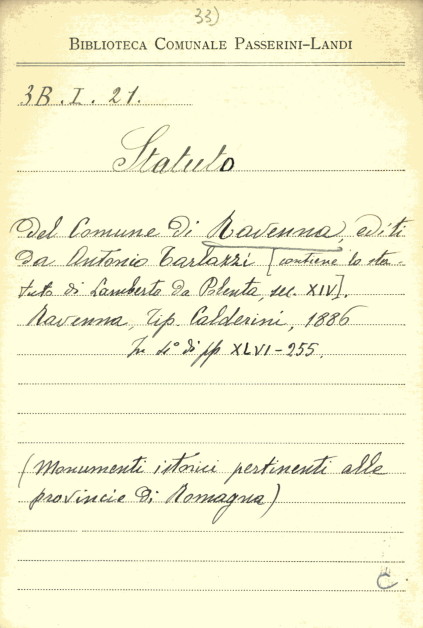 33)
BIBLIOTECA COMUNALE PASSERINI-LANDI
3B. I. 21.
Statuto
del Comune di Ravenna, editi
da Antonio Tarlazzi [contiene lo sta-
tuto di Lamberto da Polenta, sec. XIV].
Ravenna, Tip. Calderini, 1886
In 4° di pp XLVI-255.
(Monumenti istorici pertinenti alle
provincie di Romagna)
C.